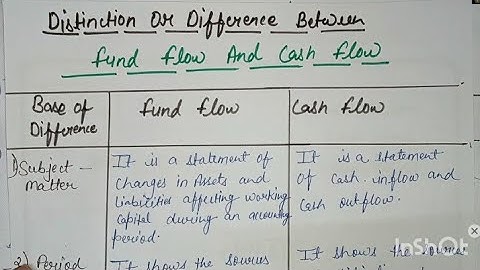 Distinction Or Difference Between
Fund Flow And Cash Flow
Base of
Difference
Fund Flow
Cash Flow
1) Subject -
matter
It is a statement of
changes in Assets and
Liabilities affecting working
capital during an accounting
period.
It is a statement
of cash inflow and
cash outflow.
2) Period
It shows the sources
It shows the sources
InShOt